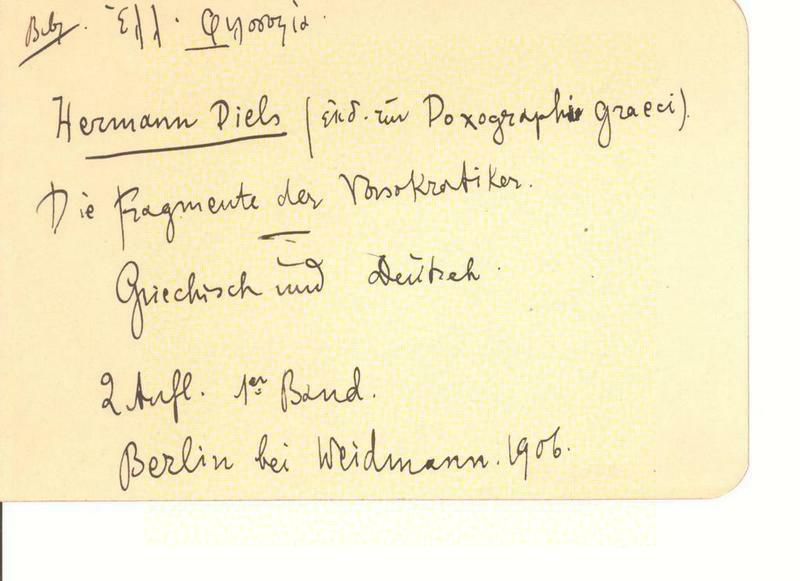 Βιβ. Ἑλλ. Φιλοσοφία.
Hermann Diels (ἐκδ. τῶν Doxographi graeci).
Die Fragmente der Vorsokratiker.
Griechisch und Deutsch.
2 Aufl. 1er Band.
Berlin bei Weidmann. 1906.